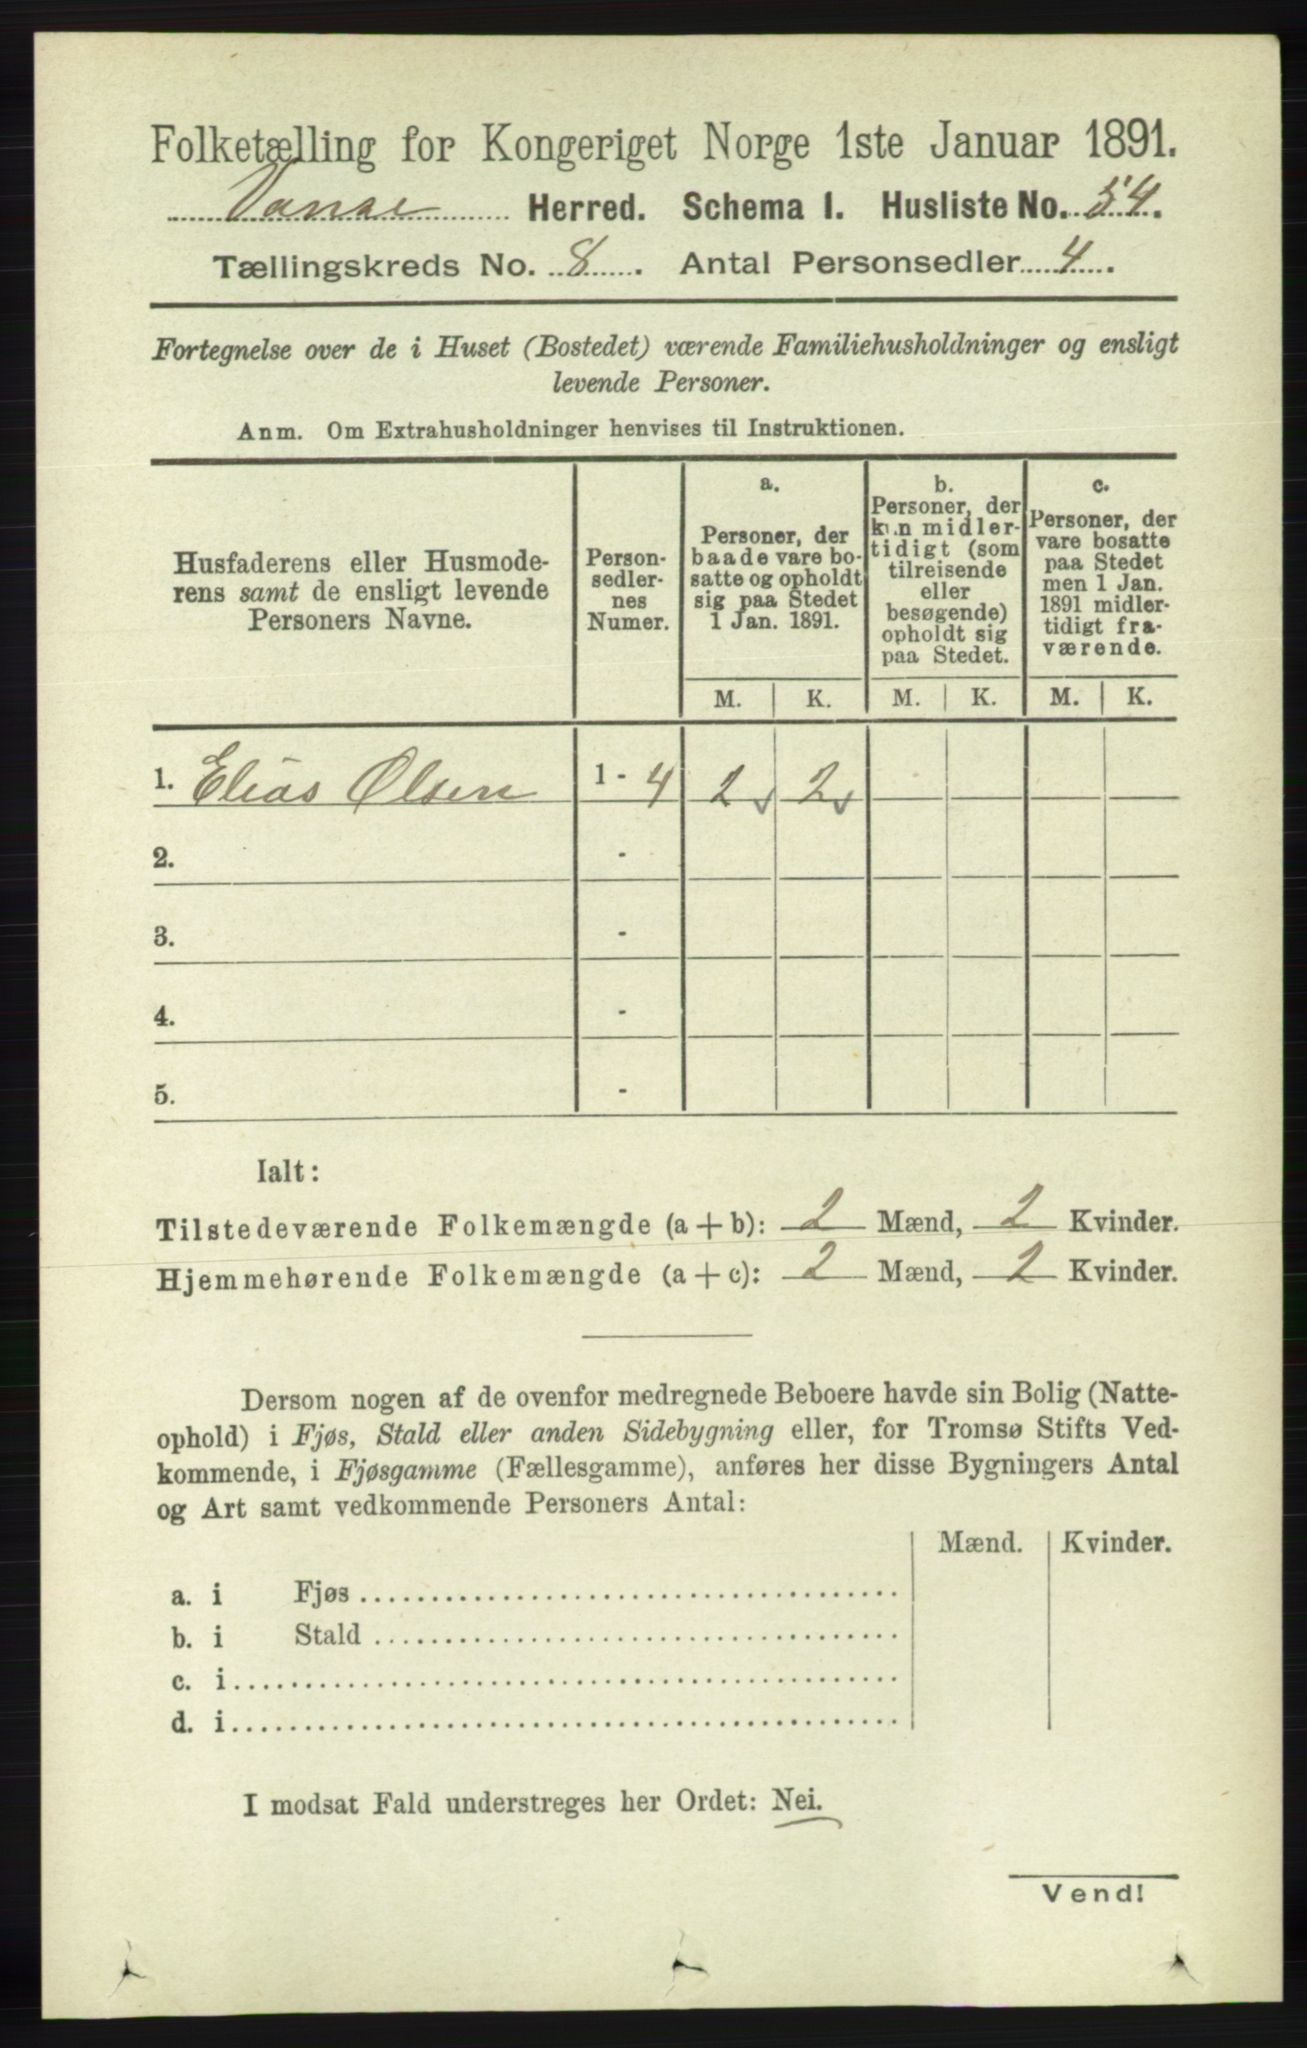 Folketælling for Kongeriget Norge 1ste Januar 1891.
Vanse Herred. Schema I. Husliste No. 54.
Tællingskreds No. 8. Antal Personsedler 4.
Fortegnelse over de i Huset (Bostedet) værende Familiehusholdninger og ensligt
levende Personer.
Anm. Om Extrahusholdninger henvises til Instruktionen.
Husfaderens eller Husmode-
rens samt de ensligt levende
Personers Navne.
Person-
sedler-
nes
Numer.
a.
Personer, der
baade vare bo-
satte og opholdt
sig paa Stedet
1 Jan. 1891.
b.
Personer, der
kun midler-
tidigt (som
tilreisende
eller
besøgende)
opholdt sig
paa Stedet.
c.
Personer, der
vare bosatte
paa Stedet
men 1 Jan.
1891 midler-
tidigt fra-
værende.
M. K. M. K. M. K.
1. Elias Olsen 1 - 4 2 2
2. -
3. -
4. -
5. -
Ialt:
Tilstedeværende Folkemængde (a + b): 2 Mænd, 2 Kvinder.
Hjemmehørende Folkemængde (a + c): 2 Mænd, 2 Kvinder.
Dersom nogen af de ovenfor medregnede Beboere havde sin Bolig (Natte-
ophold) i Fjøs, Stald eller anden Sidebygning eller, for Tromsø Stifts Ved-
kommende, i Fjøsgamme (Fællesgamme), anføres her disse Bygningers Antal
og Art samt vedkommende Personers Antal:
Mænd. Kvinder.
a. i Fjøs
b. i Stald
c. i
d. i
I modsat Fald understreges her Ordet: Nei.
Vend!